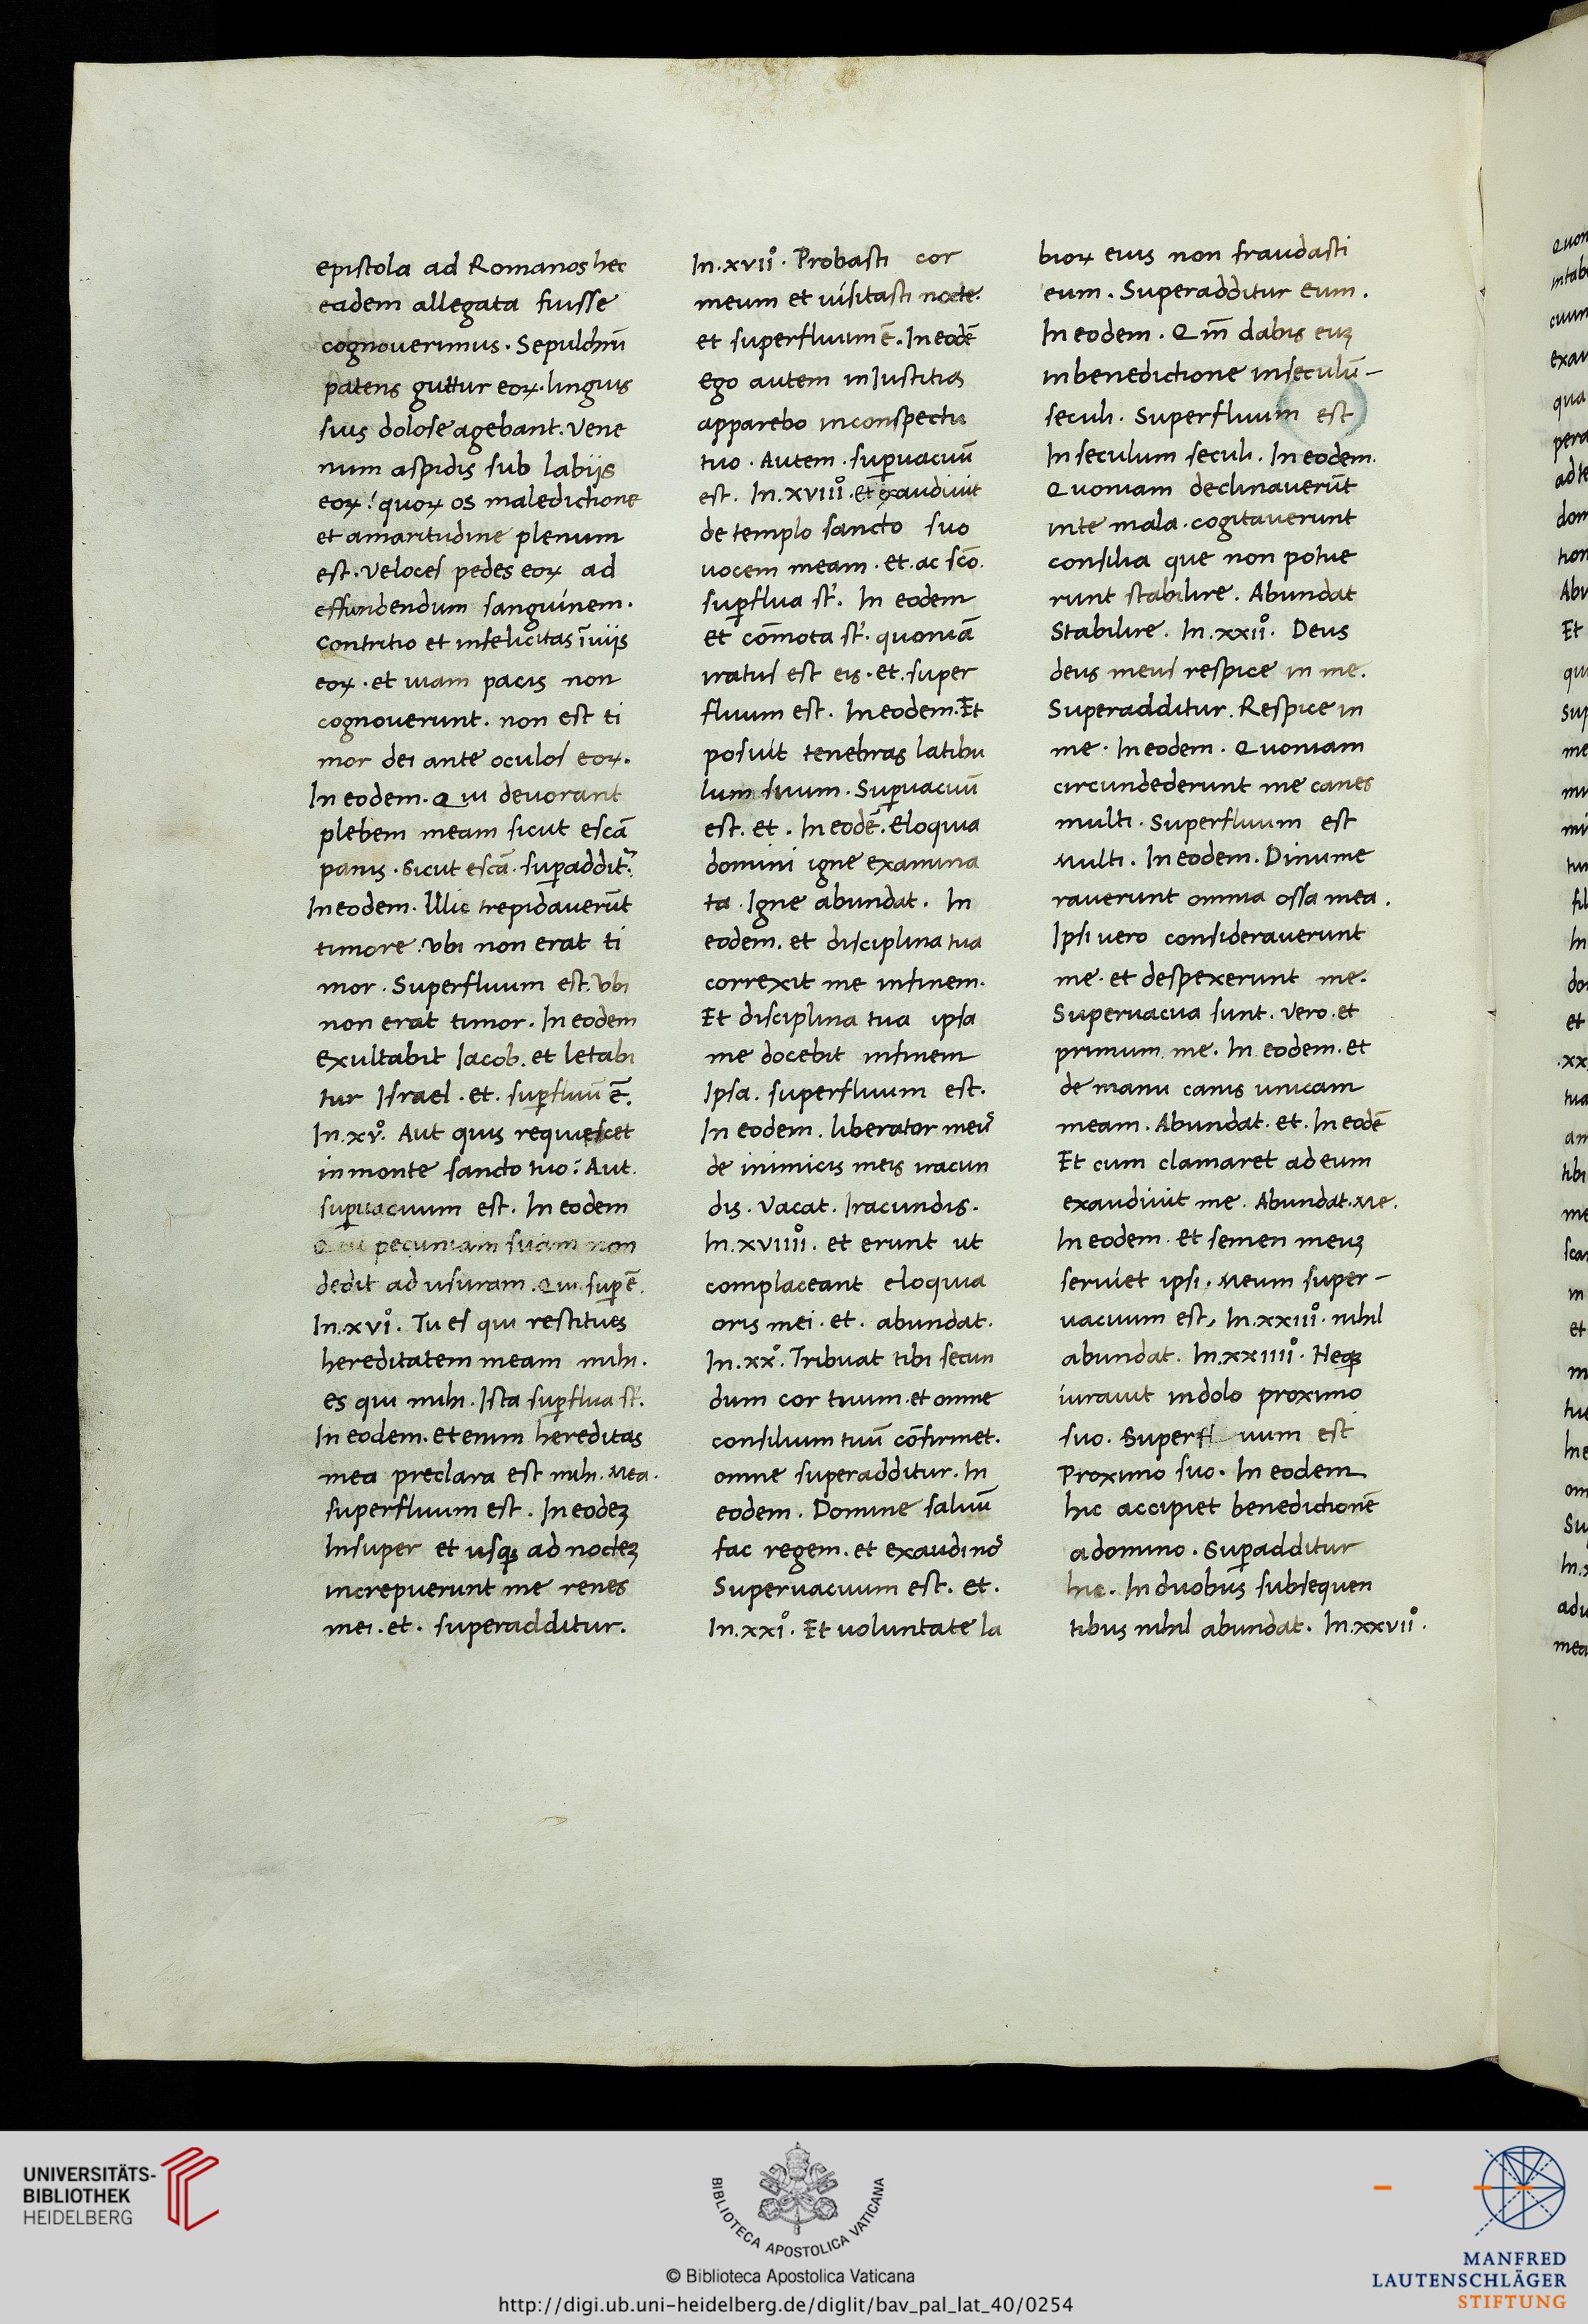 epistola ad Romanos hec
eadem allegata fuisse
cognouerimus. Sepulchrū
patens guttur eoꝝ. linguis
suis dolose agebant. Vene
num aspidis sub labijs
eoꝝ: quoꝝ os maledictione
et amaritudine plenum
est. Veloces pedes eoꝝ ad
effundendum sanguinem.
Contritio et infelicitas ī uijs
eoꝝ. et uiam pacis non
cognouerunt. non est ti
mor dei ante oculos eoꝝ.
In eodem. Qui deuorant
plebem meam sicut escā
panis. Sicut escā. suꝑaddit᷑.
In eodem. Illic trepidauerūt
timore. Vbi non erat ti
mor. Superfluum est. Vbi
non erat timor. In eodem
exultabit Iacob. et letabi
tur Israel. et. suꝑfluū ē.
In. xv°. Aut quis requiescet
in monte sancto tuo: Aut.
suꝑuacuum est. In eodem
Qui pecuniam suam non
dedit ad usuram. Qui. suꝑ ē.
In. xvi°. Tu es qui restitues
hereditatem meam mihi.
es qui mihi. Ista suꝑflua st̄.
In eodem. Etenim hereditas
mea preclara est mihi. Mea.
superfluum est. In eodeꝫ
Insuper et usqꝫ ad nocteꝫ
increpuerunt me renes
mei. et. superadditur.
In. xvii°. Probasti cor
meum et uisitasti nocte.
et superfluum ē. In eodē
ego autem in Iustitia
apparebo in conspectu
tuo. Autem. suꝑuacuū
est. In. xviii°. et exaudiuit
de templo sancto suo
uocem meam. et. ac sc̄o.
suꝑflua st̄. In eodem
et cōmota st̄. quoniā
iratus est eis. et. super
fluum est. In eodem. Et
posuit tenebras latibu
lum suum. Suꝑuacuū
est. et. In eodē. Eloquia
domini igne examina
ta. Igne abundat. In
eodem. et disciplina tua
correxit me in finem.
Et disciplina tua ipsa
me docebit in finem
Ipsa. superfluum est.
In eodem. liberator meus
de inimicis meis iracun
dis. Vacat. Iracundis.
In. xviiii°. et erunt ut
complaceant eloquia
oris mei. et. abundat.
In. xx°. Tribuat tibi secun
dum cor tuum. et omne
consilium tuū cōfirmet.
omne superadditur. In
eodem. Domine saluū
fac regem. et exaudi nos
Superuacuum est. et.
In. xxi°. Et uoluntate la
bioꝝ eius non fraudasti
eum. Superadditur Eum.
In eodem. Qm̄ dabis euꝫ
in benedictione in seculū –
seculi. Superfluum est
In seculum seculi. In eodem.
Quoniam declinauerūt
in te mala. cogitauerunt
consilia que non potue
runt stabilire. Abundat
Stabilire. In. xxii°. Deus
deus meus respice in me.
Superadditur. Respice in
me. In eodem. Quoniam
circundederunt me canes
multi. Superfluum est
Multi. In eodem. Dinume
rauerunt omnia ossa mea.
Ipsi uero considerauerunt
me. et despexerunt me.
Superuacua sunt. Vero. et
primum. me. In eodem. et
de manu canis unicam
meam. Abundat. et. In eodē
Et cum clamaret ad eum
exaudiuit me. Abundat. Me.
In eodem. et semen meuꝫ
seruiet ipsi. Meum super –
uacuum est, In. xxiii°. nihil
abundat. In. xxiiii°. Neqꝫ
iurauit in dolo proximo
suo. Superfl uum est
Proximo suo. In eodem
hic accipiet benedictionē
a domino. Suꝑadditur
hic. In duobus subsequen
tibus nihil abundat. In. xxvii°.
UNIVERSITÄTS-
BIBLIOTHEK
HEIDELBERG
BIBLIOTECA APOSTOLICA VATICANA
© Biblioteca Apostolica Vaticana
http://digi.ub.uni-heidelberg.de/diglit/bav_pal_lat_40/0254
MANFRED
LAUTENSCHLÄGER
STIFTUNG